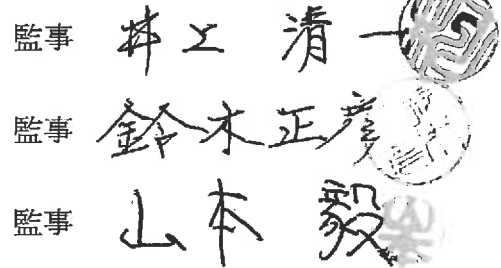 監事 井上 清一
監事 鈴木正彦
監事 山本 毅